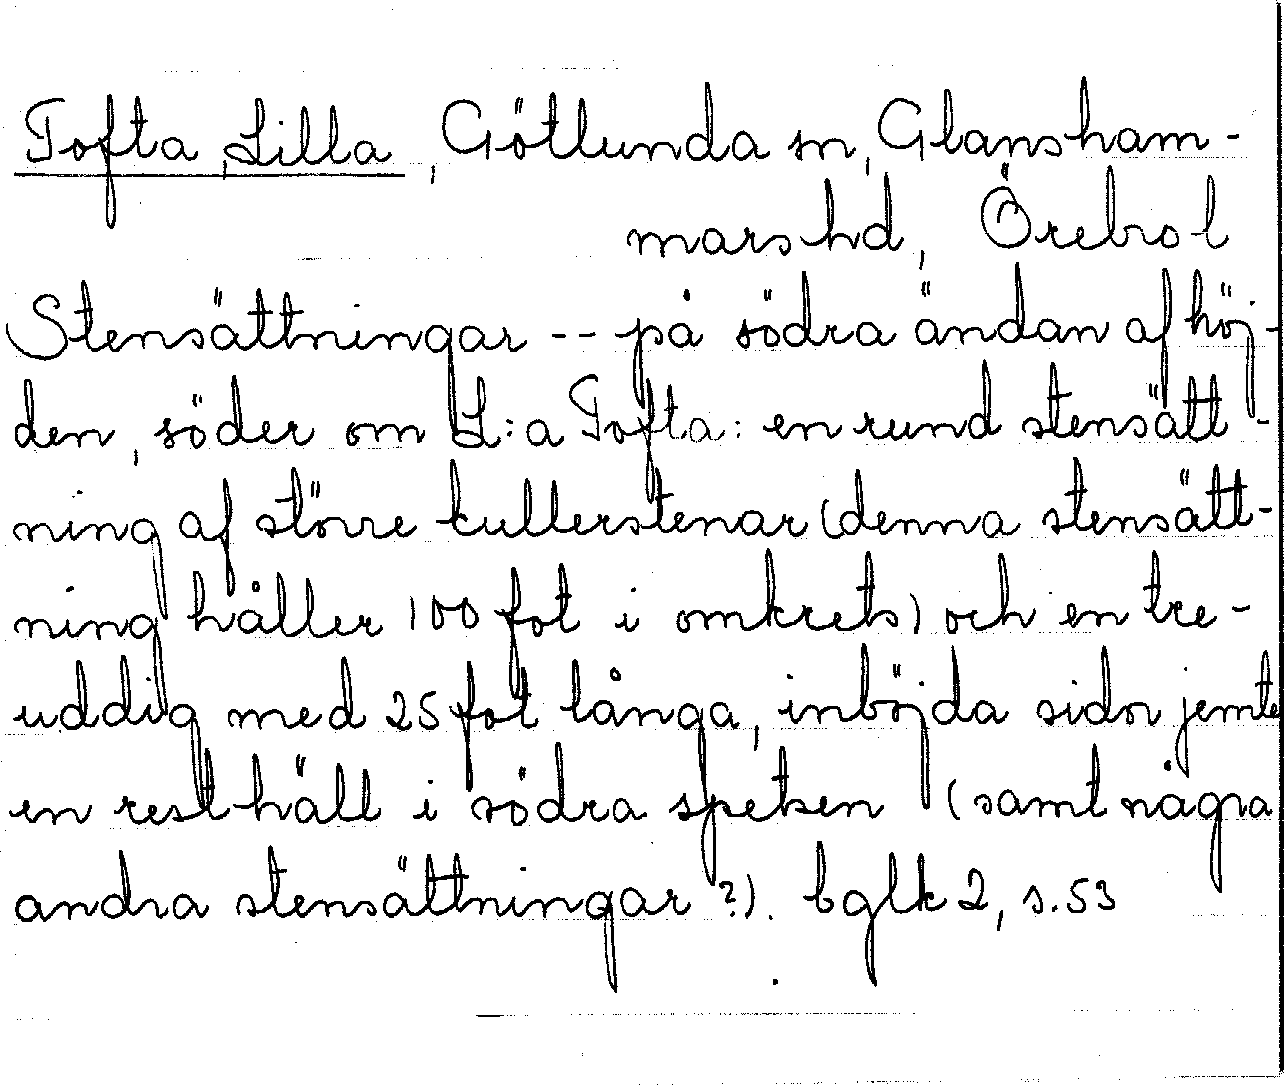 Tofta, Lilla, Götlunda sn, Glansham-
mars hd, Örebro l
Stensättningar -- på södra ändan af höj-
den, söder om L:a Tofta: en rund stensätt-
ning af större kullerstenar (denna stensätt-
ning håller 100 fot i omkrets) och en tre-
uddig med 25 fot långa, inböjda sidor jemte
en rest häll i södra speten (samt några
andra stensättningar?). bglk 2, s. 53